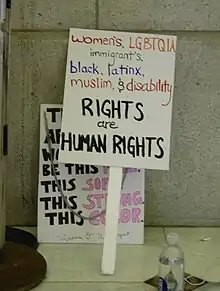 women's, LGBTQIA
immigrant's,
black, latinx,
muslim, & disability
RIGHTS
are
HUMAN RIGHTS
BE THIS
THIS
THIS STRONG
THIS COLOR.